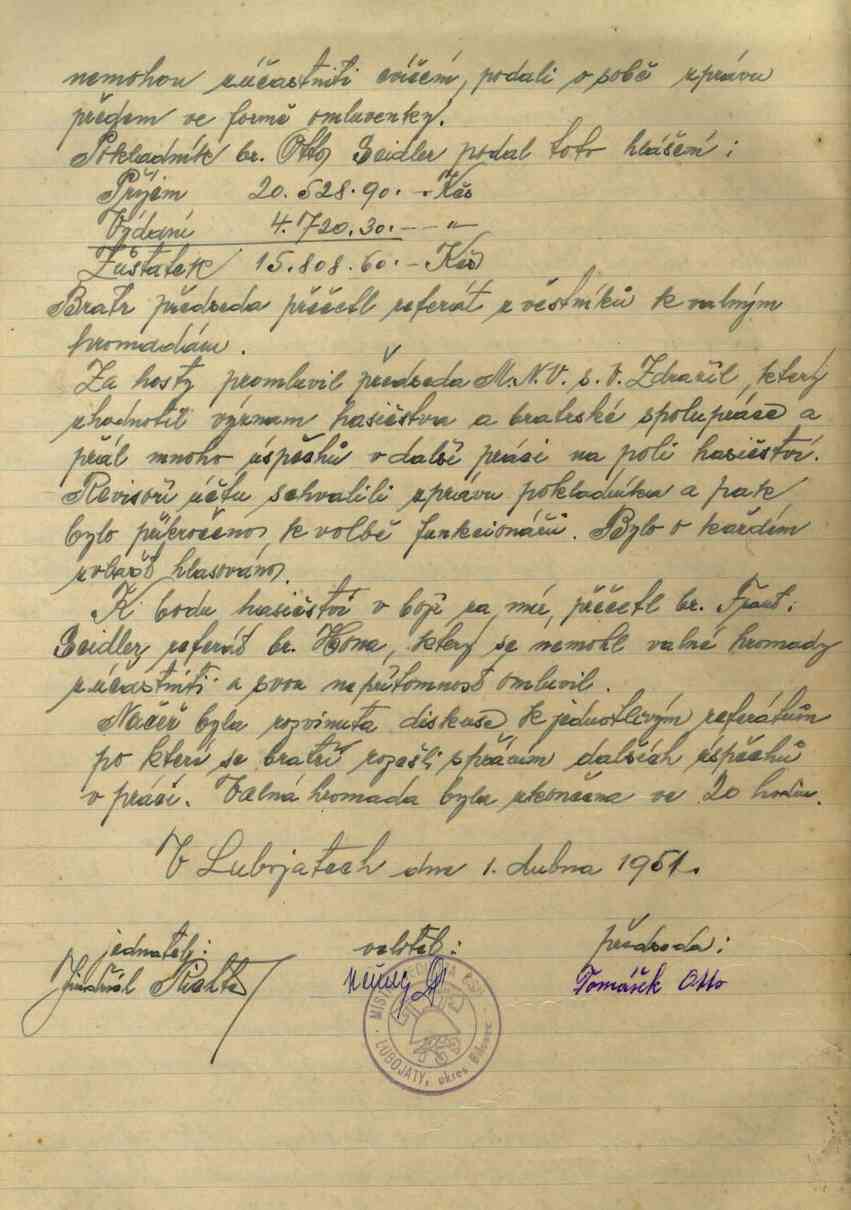 nemohou zúčastniti cvičení, podali o sobě zprávu
předem ve formě omluvenky.
Pokladník br. Otto Seidler podal toto hlášení:
Příjem 20.528.90.- Kčs
Vydání 4.720.30.- - "
Zůstatek 15.808.60.- Kčs
Bratr předseda přečetl referát z věstníků k valným
hromadám.
Za hosty promluvil předseda M.N.V. s. V. Zdražil, který
zhodnotil význam hasičstva a bratrské spolupráce a
přál mnoho úspěchů v další práci na poli hasičství.
Revisoři účtu schválili zprávu pokladníka a pak
bylo přikročeno k volbě funkcionářů. Bylo o každém
zvlášť hlasováno.
K bodu hasičství v boji za mír, přečetl br. Frant.
Seidler referát br. Hona, který se nemohl valné hromady
zúčastniti a svou nepřítomnost omluvil.
Načež byla rozvinuta diskuse k jednotlivým referátům
po které se bratři rozešli s přáním dalších úspěchů
v práci. Valná hromada byla ukončena ve 20 hodin.
V Lubojatech dne 1. dubna 1951.
jednatel: velitel: předseda:
Jindřich Tomášek Otto
LUBOJATY, okres Bílovec